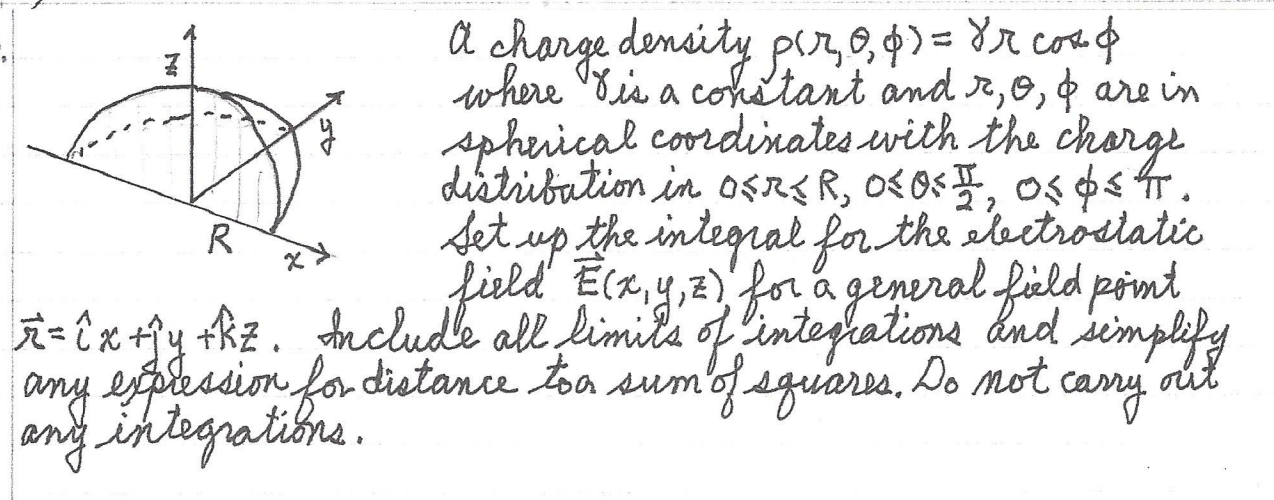 A charge density ρ(r,θ,φ) = γr cos φ
z
where γ is a constant and r, θ, φ are in
y
spherical coordinates with the charge
distribution in 0≤r≤R, 0≤θ≤π/2, 0≤φ≤π.
R
Set up the integral for the electrostatic
x
field E⃗(x,y,z) for a general field point
r⃗ = îx + ĵy + k̂z. Include all limits of integrations and simplify
any expression for distance to a sum of squares. Do not carry out
any integrations.